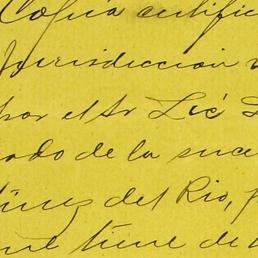 Copia certific
Jurisdiccion v
por el Sr Lic
ado de la suce
tínez del Rio, f
que tiene de